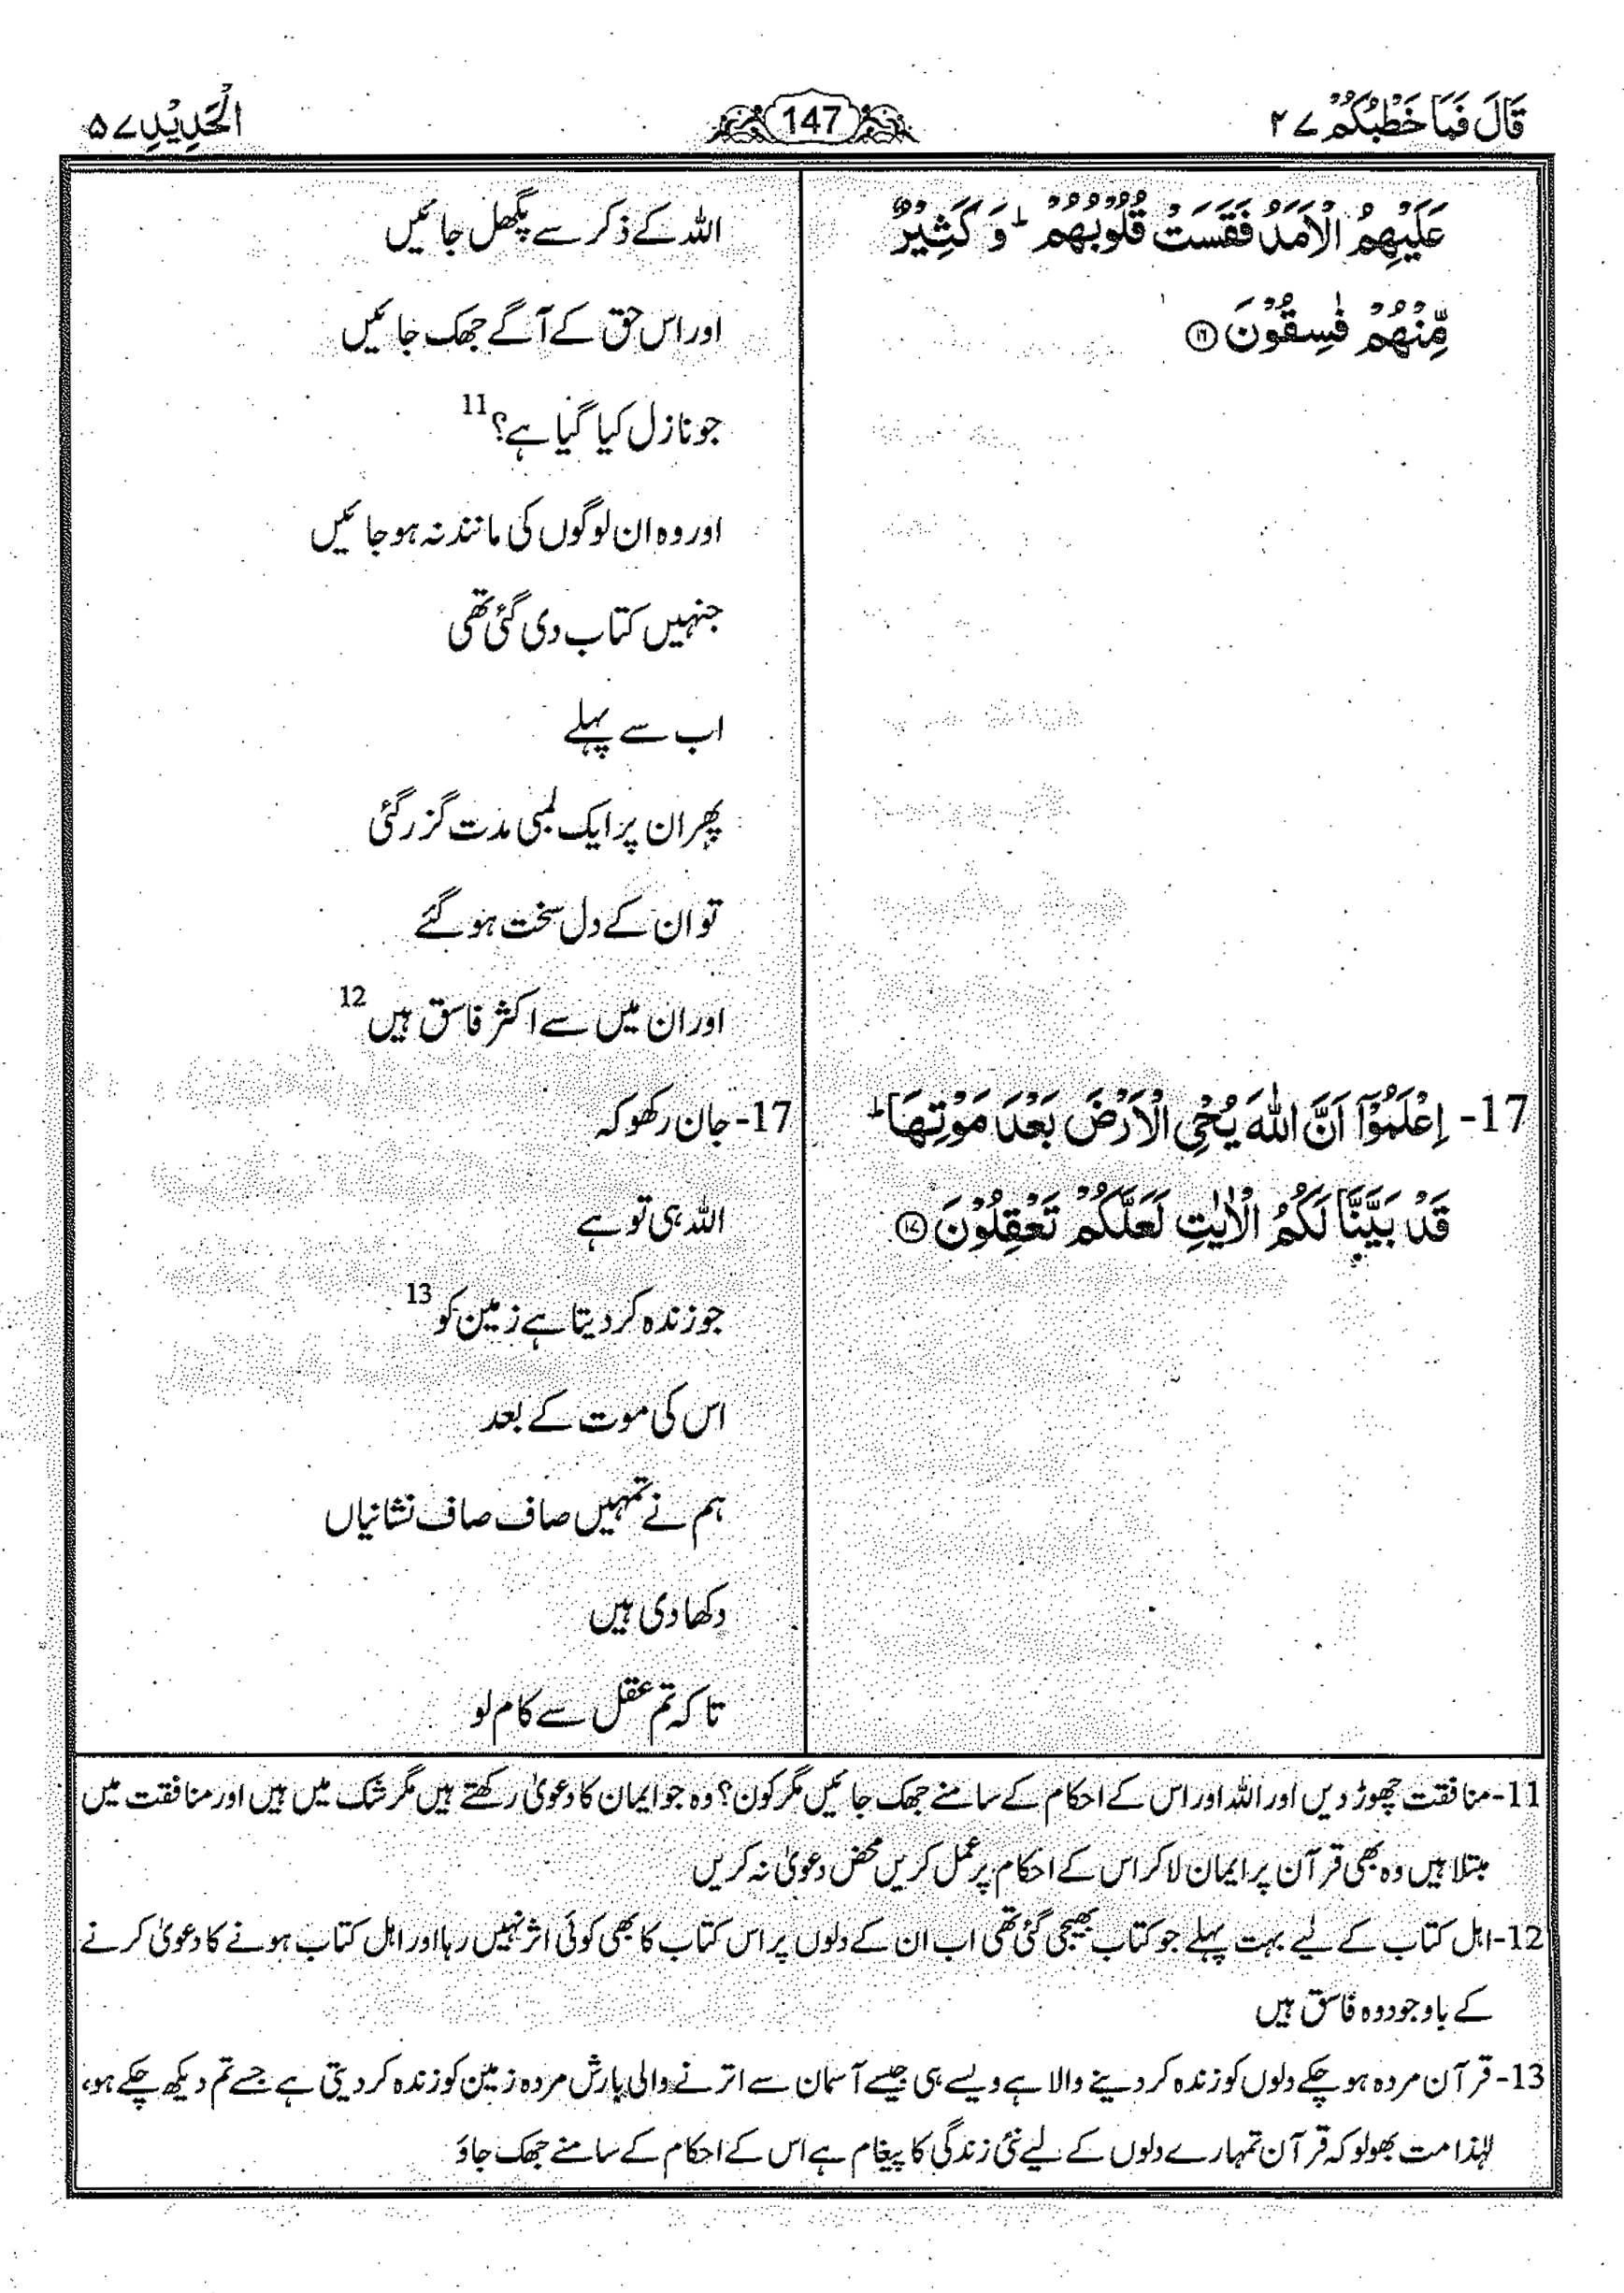 قَالَ فَمَا خَطْبُكُمْ ۲۷
147
اَلْحَدِيْدِ ۵۷
عَلَيْهِمُ الْاَمَدُ فَقَسَتْ قُلُوْبُهُمْ ؕ وَ كَثِيْرٌ
مِّنْهُمْ فٰسِقُوْنَ ۝۱۶
17- اِعْلَمُوْۤا اَنَّ اللّٰهَ يُحْيِ الْاَرْضَ بَعْدَ مَوْتِهَا ؕ
قَدْ بَيَّنَّا لَكُمُ الْاٰيٰتِ لَعَلَّكُمْ تَعْقِلُوْنَ ۝۱۷
اللہ کے ذکر سے پگھل جائیں
اور اس حق کے آگے جھک جائیں
جو نازل کیا گیا ہے؟ 11
اور وہ ان لوگوں کی مانند نہ ہو جائیں
جنہیں کتاب دی گئی تھی
اب سے پہلے
پھر ان پر ایک لمبی مدت گزر گئی
تو ان کے دل سخت ہو گئے
اور ان میں سے اکثر فاسق ہیں 12
17- جان رکھو کہ
اللہ ہی تو ہے
جو زندہ کر دیتا ہے زمین کو 13
اس کی موت کے بعد
ہم نے تمہیں صاف صاف نشانیاں
دکھا دی ہیں
تا کہ تم عقل سے کام لو
11- منافقت چھوڑ دیں اور اللہ اور اس کے احکام کے سامنے جھک جائیں مگر کون؟ وہ جو ایمان کا دعویٰ رکھتے ہیں مگر شک میں ہیں اور منافقت میں
مبتلا ہیں وہ بھی قرآن پر ایمان لا کر اس کے احکام پر عمل کریں محض دعویٰ نہ کریں
12- اہل کتاب کے لیے بہت پہلے جو کتاب بھیجی گئی تھی اب ان کے دلوں پر اس کتاب کا بھی کوئی اثر نہیں رہا اور اہل کتاب ہونے کا دعویٰ کرنے
کے باوجود وہ فاسق ہیں
13- قرآن مردہ ہو چکے دلوں کو زندہ کر دینے والا ہے ویسے ہی جیسے آسمان سے اترنے والی بارش مردہ زمین کو زندہ کر دیتی ہے جسے تم دیکھ چکے ہو،
لہٰذا مت بھولو کہ قرآن تمہارے دلوں کے لیے نئی زندگی کا پیغام ہے اس کے احکام کے سامنے جھک جاؤ